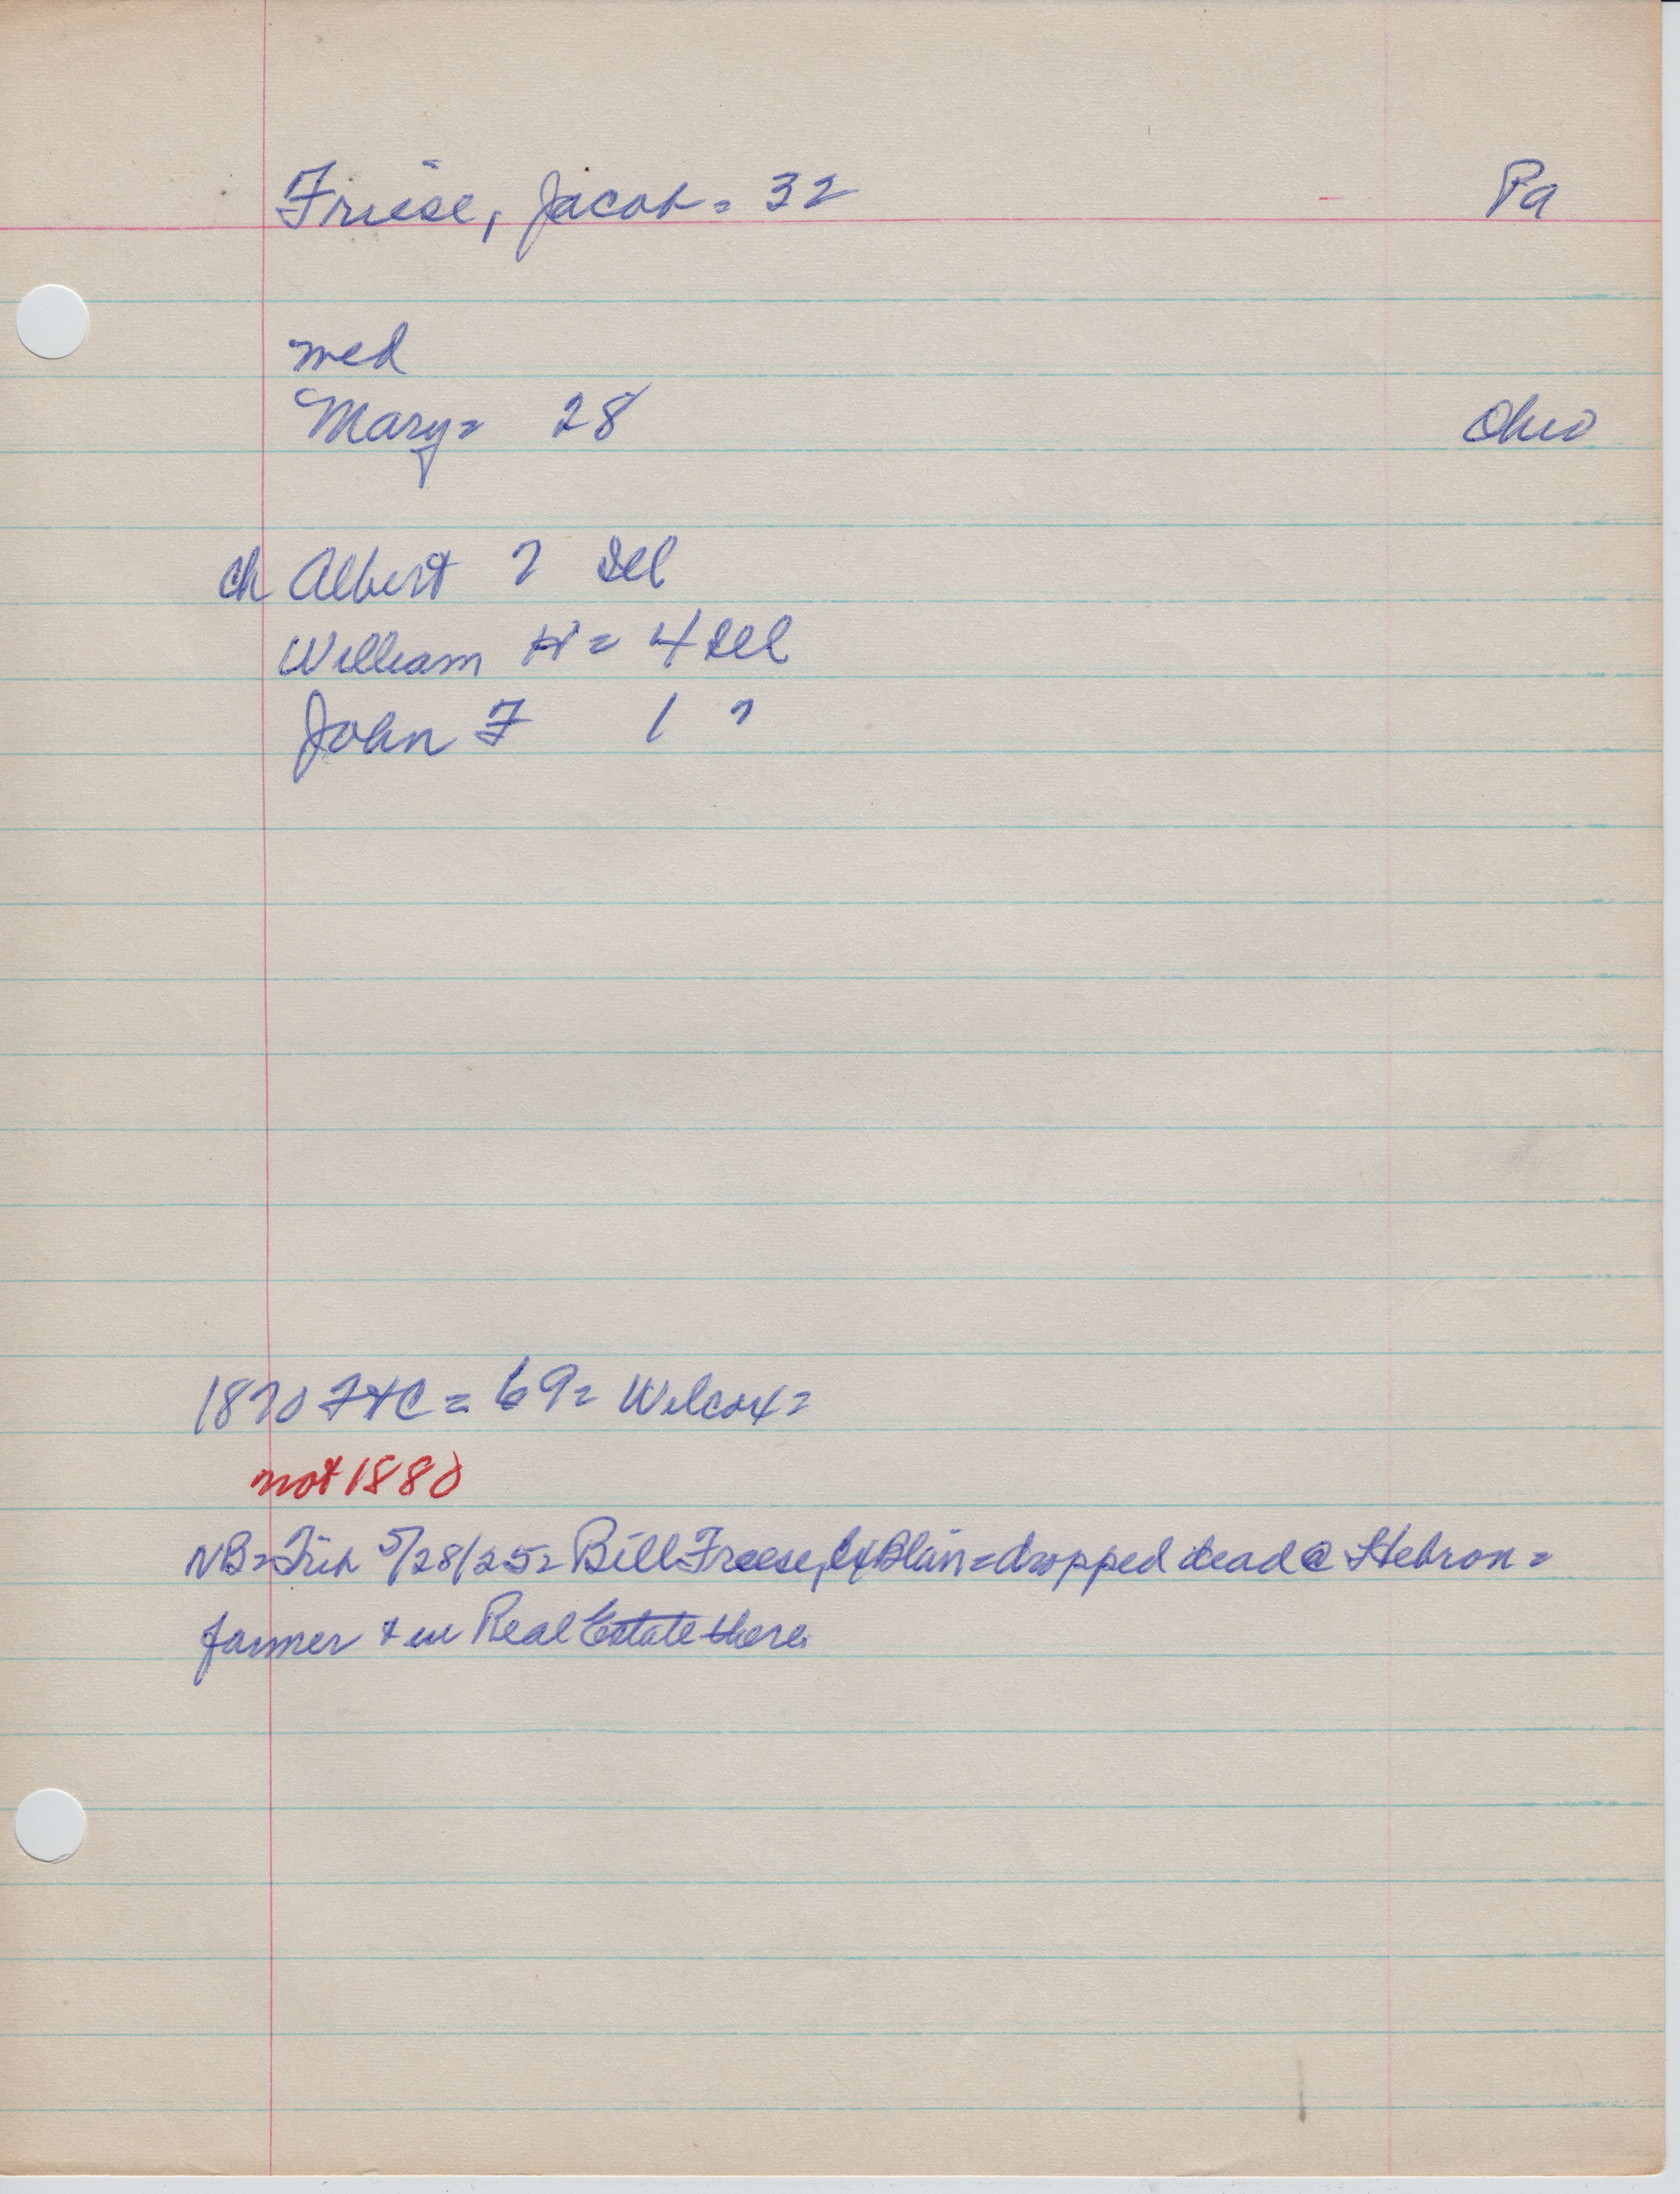 Friese, Jacob = 32 - Pa
med
Mary = 28 Ohio
ch Albert 7 Ill
William H = 4 Ill
John F 1 "
1870 = 69 = Wilcox =
not 1880
NB = Trib 5/28/25 = Bill Freese, ex Blair = dropped dead @ Hebron =
farmer & in Real Estate there.